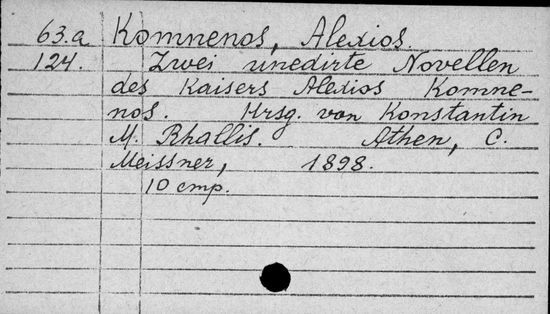 63.a Komnenos, Alexios.
124. Zwei unedirte Novellen
des Kaisers Alexios Komne-
nos. Hrsg. von Konstantin
M. Rhallis. Athen, C.
Meissner, 1898.
10 стр.